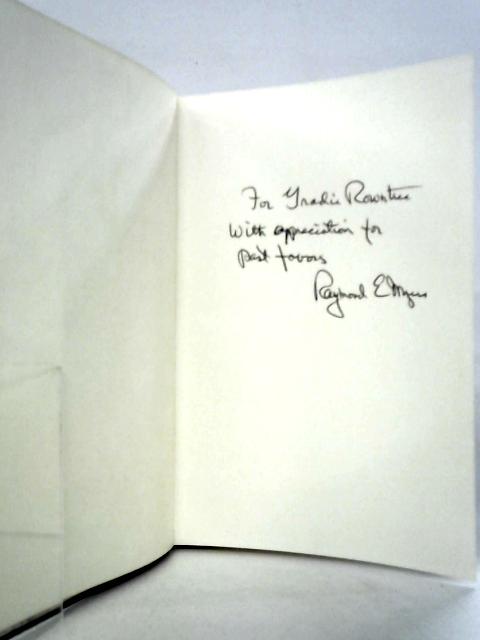 For Gradie Rowntree
With appreciation for
past favors
Raymond E Myers